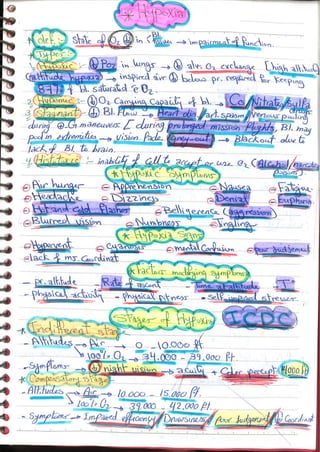 * Hypoxia
Def: State of O2 in → impairment of function.
* Types:
1. Hypoxic: PO2 in lungs → alv. O2 exchange [high alt.
altitude hypoxia → inspired air below pr. required for keeping
of bl. saturated O2.
2. Hypemic: O2 Carrying Capacity of bl. → Co / Nitrate / Sulfa
3. Stagnant: Bl. Flow → Heart dis / art. spasm / Venous pooling
during G maneuvers during prolonged mission Flights, Bl. may
pool in extremities → Vision Grey-out → Blackout due to
lack of Bl. to brain.
4. Histotoxic: inability of cell to accept or use O2 (Alcohol / narcotics
* Hypoxic Symptoms
Air hunger Apprehension Nausea Fatigue
Headache Dizziness Denial Euphoria
Hot and cold flashes Belligerence (aggression)
Blurred vision Numbness Tingling
* Hypoxia Signs
Hypervent cyanosis mental Confusion poor Judgement
lack of ms. Coordinat
* Factors modifying symptoms
- pr. altitude - Rate of ascent - time at altitude - T°
- Physical activity - Physical fitness - Self imposed stressor.
Stages of Hypoxia ICDC
* Indifferent stage
- Altitudes → Air → 0 - 10.000 ft
100% O2 → 34.000 - 39.000 ft.
- Symptoms → night vision → acuity + Color percept 4000 ft
* Compensatory stage
- Altitudes → Air → 10.000 - 15.000 ft
100% O2 → 39.000 - 42.000 ft
- Symptoms → Impaired efficiency / Drowsiness / Poor Judgement / Coordinat